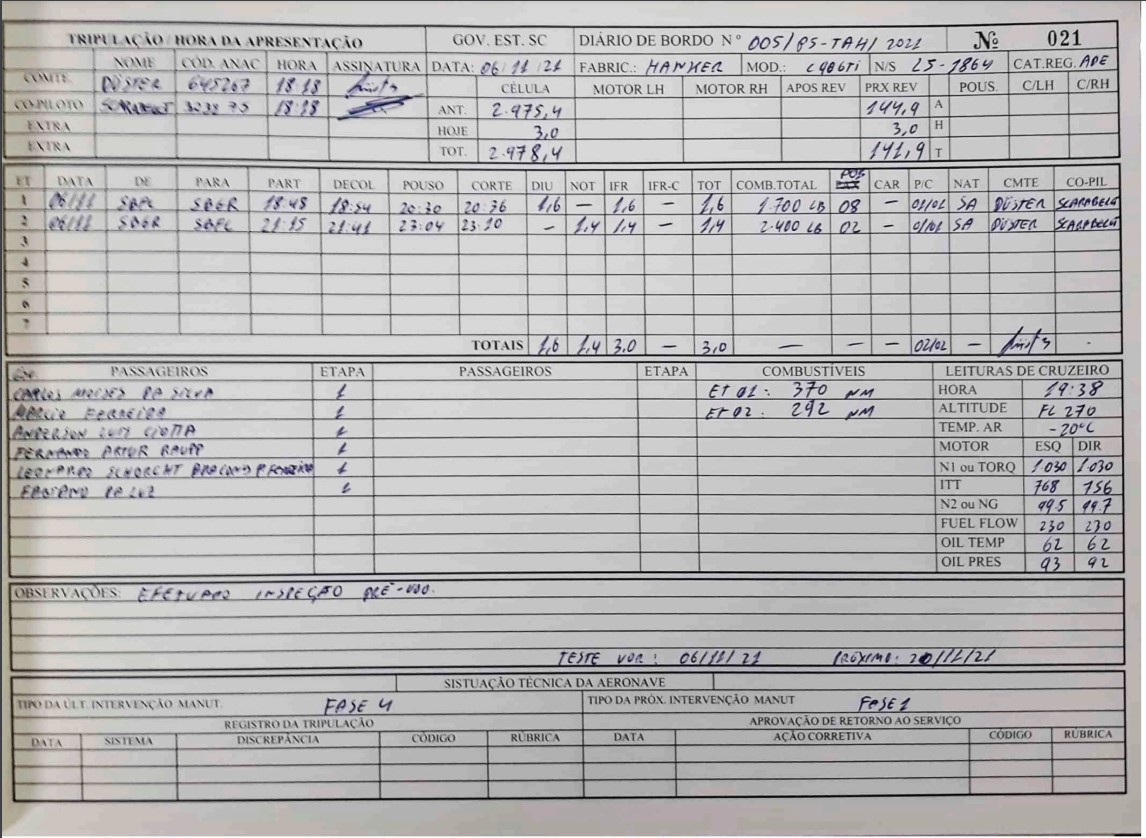 TRIPULAÇÃO / HORA DA APRESENTAÇÃO GOV. EST. SC DIÁRIO DE BORDO Nº 005/PS-TAH/2021 Nº 021
NOME CÓD. ANAC HORA ASSINATURA DATA: 06/11/21 FABRIC.: HAWKER MOD.: C90GTi N/S LJ-1864 CAT.REG. ADE
COMTE. DÜSTER 645267 18:18 CÉLULA MOTOR LH MOTOR RH APOS REV PRX REV POUS. C/LH C/RH
CO-PILOTO 18:18 ANT. 2.975,4 144,9 A
EXTRA HOJE 3,0 3,0 H
EXTRA TOT. 2.978,4 141,9 T
ET DATA DE PARA PART DECOL POUSO CORTE DIU NOT IFR IFR-C TOT COMB.TOTAL POB CAR P/C NAT CMTE CO-PIL
1 06/11 SBFL SBGR 18:48 18:54 20:30 20:36 1,6 — 1,6 — 1,6 1.700 LB 08 — 01/01 SA DÜSTER SCARABELOT
2 06/11 SBGR SBFL 21:35 21:41 23:04 23:10 — 1,4 1,4 — 1,4 2.400 LB 02 — 01/01 SA DÜSTER SCARABELOT
3
4
5
6
7
TOTAIS 1,6 1,4 3,0 — 3,0 — — — 02/02 — -
PASSAGEIROS ETAPA PASSAGEIROS ETAPA COMBUSTÍVEIS LEITURAS DE CRUZEIRO
CARLOS MOISES DA SILVA 1 ET 01: 370 NM HORA 19:38
MÁRCIO FERREIRA 1 ET 02: 292 NM ALTITUDE FL 270
ANDERSON LUIS CIOTTA 1 TEMP. AR -20°C
FERNANDO ARTUR RAUPP 1 MOTOR ESQ DIR
LEONARDO SCHORCHT BRACONY P FERREIRA 1 N1 ou TORQ 1.030 1.030
FABIANO DA LUZ 1 ITT 768 756
N2 ou NG 99.5 99.7
FUEL FLOW 230 230
OIL TEMP 62 62
OIL PRES 93 92
OBSERVAÇÕES: EFETUADO INSPEÇÃO PRÉ-VOO.
TESTE VOR: 06/11/21 PRÓXIMO: 20/11/21
SISTUAÇÃO TÉCNICA DA AERONAVE
TIPO DA ÚLT. INTERVENÇÃO MANUT. FASE 4 TIPO DA PRÓX. INTERVENÇÃO MANUT FASE 1
REGISTRO DA TRIPULAÇÃO APROVAÇÃO DE RETORNO AO SERVIÇO
DATA SISTEMA DISCREPÂNCIA CÓDIGO RÚBRICA DATA AÇÃO CORRETIVA CÓDIGO RÚBRICA